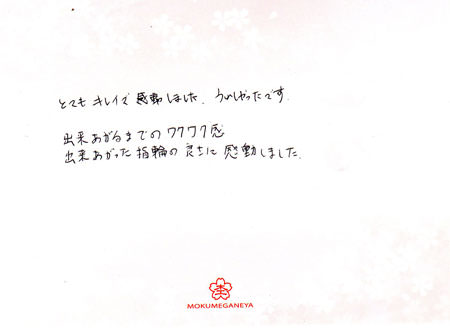 とてもキレイで感動しました。うれしかったです。
出来あがるまでのワクワク感
出来あがった指輪の良さに感動しました。
MOKUMEGANEYA